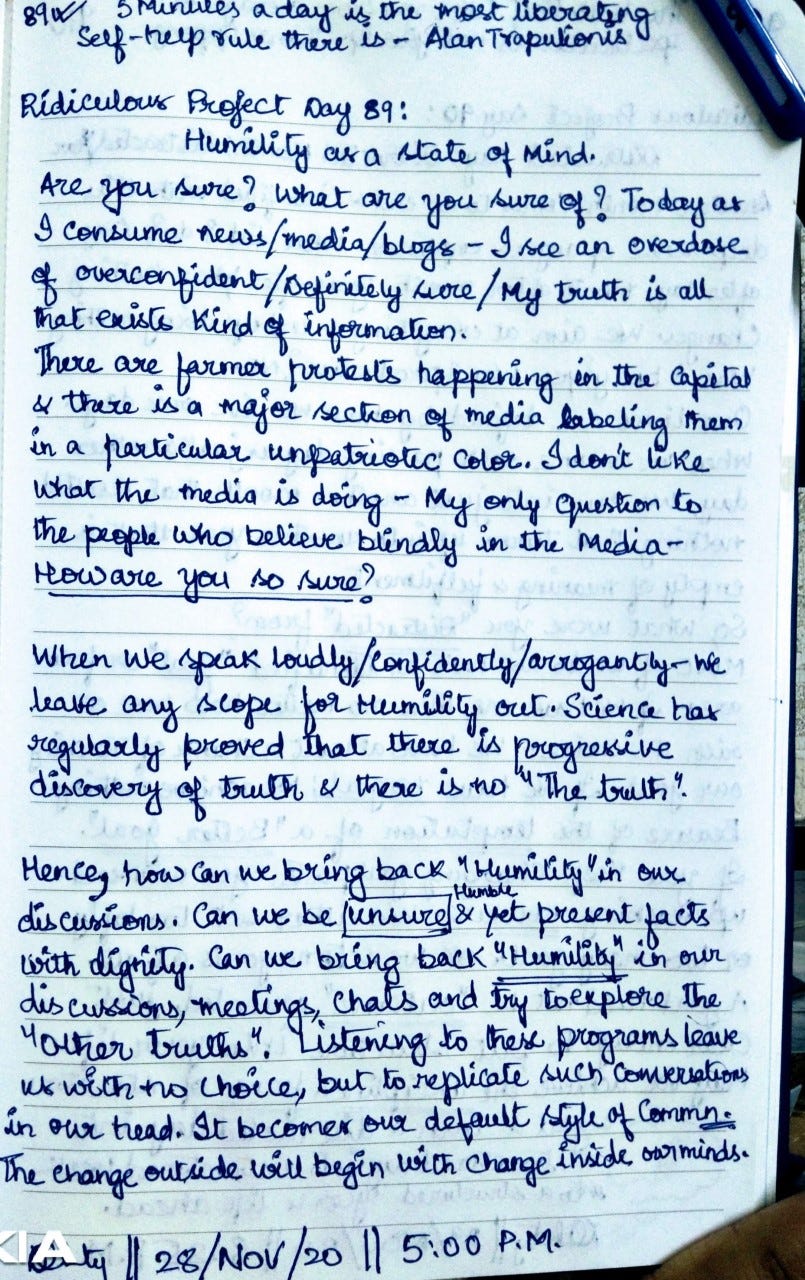 89 5 Minutes a day is the most liberating
Self-help rule there is - Alan Trapulionis
Ridiculous Project Day 89:
Humility as a state of Mind.
Are you sure? What are you sure of? Today as
I consume news/media/blogs - I see an overdose
of overconfident/Definitely sure/My truth is all
that exists kind of information.
There are farmer protests happening in the Capital
& there is a major section of media labeling them
in a particular unpatriotic color. I don't like
what the media is doing - My only Question to
the people who believe blindly in the Media-
How are you so sure?
When we speak loudly/confidently/arrogantly - we
leave any scope for Humility out. Science has
regularly proved that there is progressive
discovery of truth & there is no "The truth".
Hence, how can we bring back "Humility" in our
Humble
discussions. Can we be unsure & yet present facts
with dignity. Can we bring back "Humility" in our
discussions, meetings, chats and try to explore the
"Other truths". Listening to these programs leave
us with no choice, but to replicate such conversations
in our head. It becomes our default style of Commn.
The change outside will begin with change inside our minds.
|| 28/NOV/20 || 5:00 P.M.